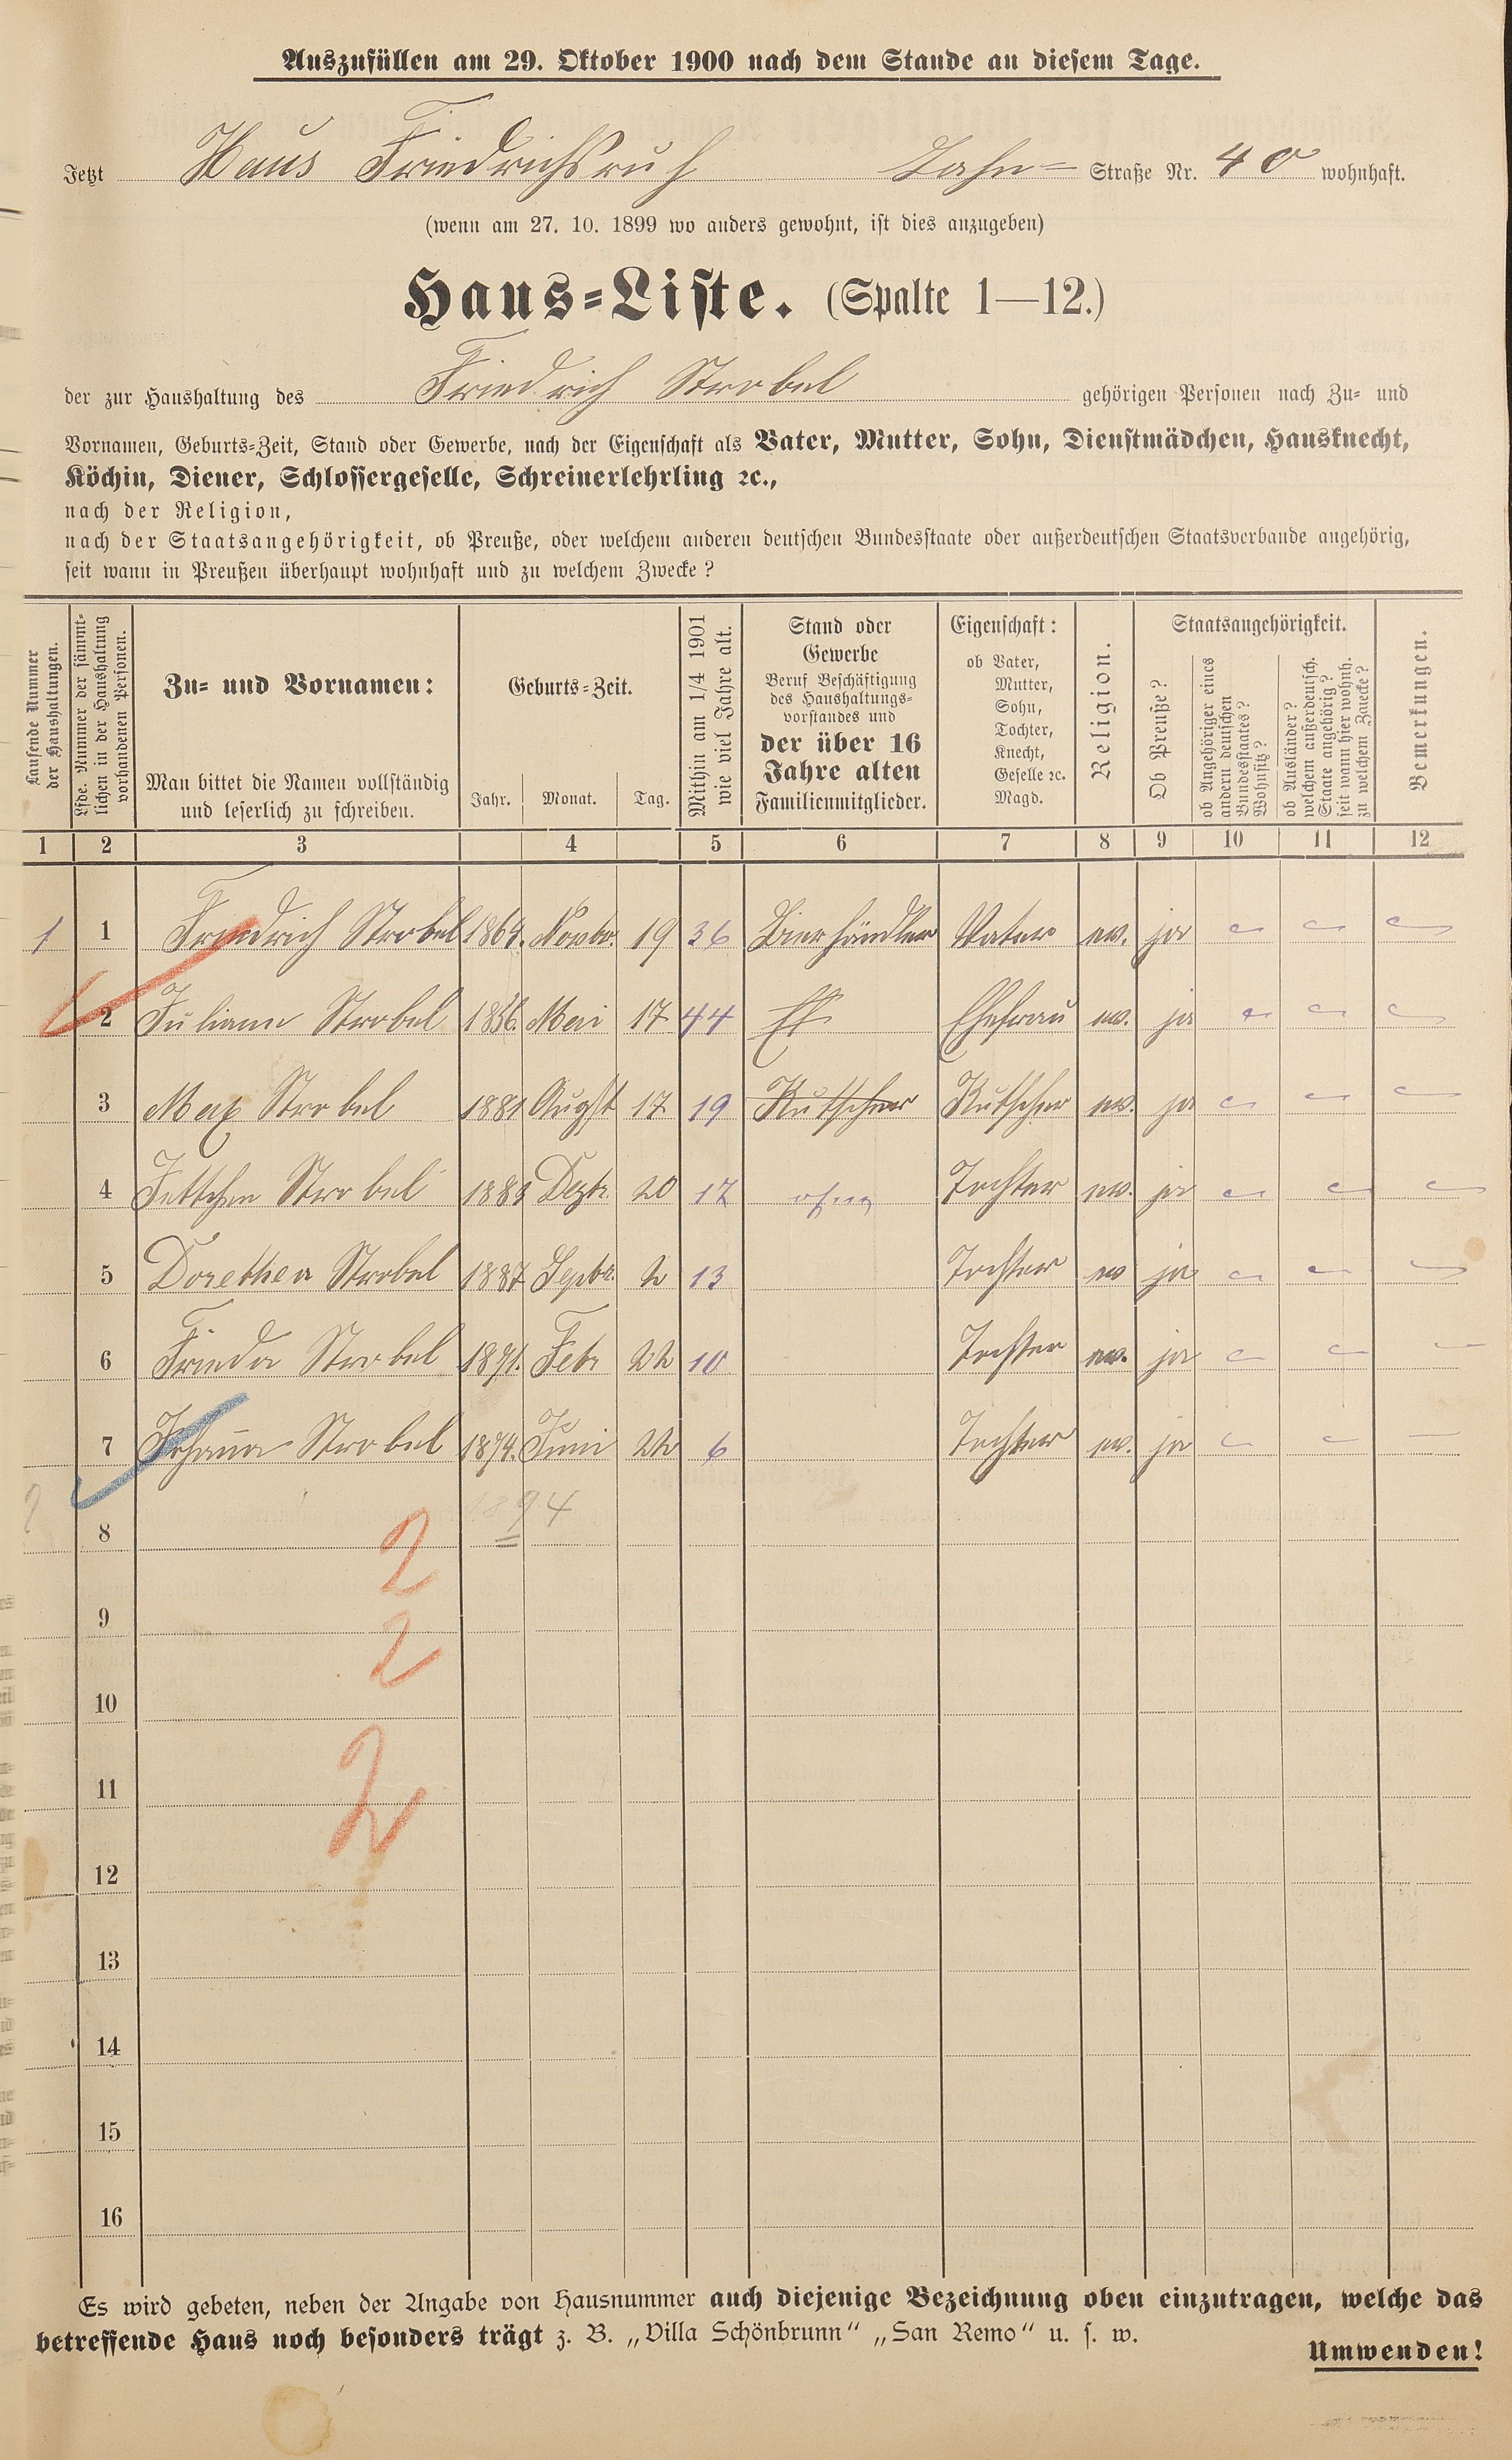 Auszufüllen am 29. Oktober 1900 nach dem Stande an diesem Tage.
Jetzt Haus Friedrichsruh Lahn= Straße Nr. 40 wohnhaft.
(wenn am 27. 10. 1899 wo anders gewohnt, ist dies anzugeben)
Haus=Liste. (Spalte 1—12.)
der zur Haushaltung des Friedrich Strobel gehörigen Personen nach Zu= und
Vornamen, Geburts=Zeit, Stand oder Gewerbe, nach der Eigenschaft als Vater, Mutter, Sohn, Dienstmädchen, Hausknecht,
Köchin, Diener, Schlossergeselle, Schreinerlehrling ꝛc.,
nach der Religion,
nach der Staatsangehörigkeit, ob Preuße, oder welchem anderen deutschen Bundesstaate oder außerdeutschen Staatsverbande angehörig,
seit wann in Preußen überhaupt wohnhaft und zu welchem Zwecke?
Laufende Nummer
der Haushaltungen.
Lfde. Nummer der sämmt-
lichen in der Haushaltung
vorhandenen Personen.
Zu= und Vornamen:
Man bittet die Namen vollständig
und leserlich zu schreiben.
Geburts=Zeit.
Jahr. Monat. Tag.
Mithin am 1/4 1901
wie viel Jahre alt.
Stand oder
Gewerbe
Beruf Beschäftigung
des Haushaltungs=
vorstandes und
der über 16
Jahre alten
Familienmitglieder.
Eigenschaft:
ob Vater,
Mutter,
Sohn,
Tochter,
Knecht,
Geselle ꝛc.
Magd.
Religion.
Staatsangehörigkeit.
Ob Preuße?
ob Angehöriger eines
andern deutschen
Bundesstaates?
Wohnsitz?
ob Ausländer?
welchem außerdeutsch.
Staate angehörig?
seit wann hier wohnh.
zu welchem Zwecke?
Bemerkungen.
1 2 3 4 5 6 7 8 9 10 11 12
1 1 Friedrich Strobel 1864. Novbr. 19 36 Bierhändler Vater ev. ja
2 Juliane Strobel 1856. Mai 17 44 Ehefrau ev. ja
3 Max Strobel 1881 August 17 19 Kutscher Kutscher ev. ja
4 Jettchen Strobel 1883 Dezbr. 20 17 ohne Tochter ev. ja
5 Dorethea Strobel 1887 Septbr. 2 13 Tochter ev ja
6 Frieda Strobel 1891. Febr 22 10 Tochter ev. ja
7 Johanna Strobel 1874. Juni 22 6 Tochter ev. ja
1894
8
2
9
2
10
11
2
12
13
14
15
16
Es wird gebeten, neben der Angabe von Hausnummer auch diejenige Bezeichnung oben einzutragen, welche das
betreffende Haus noch besonders trägt z. B. „Villa Schönbrunn“ „San Remo“ u. s. w.
Umwenden!